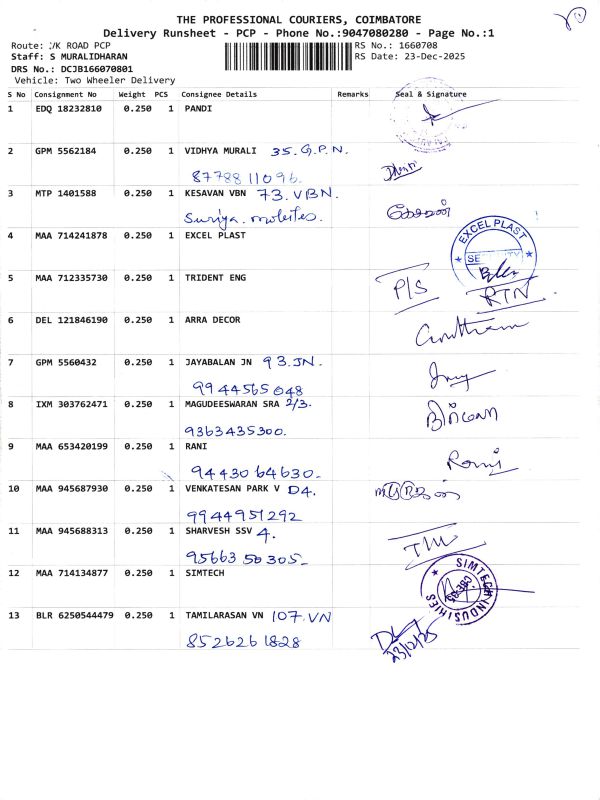 THE PROFESSIONAL COURIERS, COIMBATORE
Delivery Runsheet - PCP - Phone No.:9047080280 - Page No.:1
Route: VK ROAD PCP RS No.: 1660708
Staff: S MURALIDHARAN RS Date: 23-Dec-2025
DRS No.: DCJB166070801
Vehicle: Two Wheeler Delivery
S No Consignment No Weight PCS Consignee Details Remarks Seal & Signature
1 EDQ 18232810 0.250 1 PANDI
2 GPM 5562184 0.250 1 VIDHYA MURALI 35. G.P.N.
8778811096.
3 MTP 1401588 0.250 1 KESAVAN VBN 73. VBN.
Suriya. mobiles. கேசவன்
4 MAA 714241878 0.250 1 EXCEL PLAST EXCEL PLAST
SECURITY
5 MAA 712335730 0.250 1 TRIDENT ENG P/S RTN
6 DEL 121846190 0.250 1 ARRA DECOR
7 GPM 5560432 0.250 1 JAYABALAN JN 93. JN.
9944565048
8 IXM 303762471 0.250 1 MAGUDEESWARAN SRA 2/3.
9363435300.
9 MAA 653420199 0.250 1 RANI
9443064630. Rani
10 MAA 945687930 0.250 1 VENKATESAN PARK V D4.
9944951292
11 MAA 945688313 0.250 1 SHARVESH SSV 4.
9566350305.
12 MAA 714134877 0.250 1 SIMTECH SIMTECH INDUSTRIES
13 BLR 6250544479 0.250 1 TAMILARASAN VN 107. VN
8526261828 23/12/25